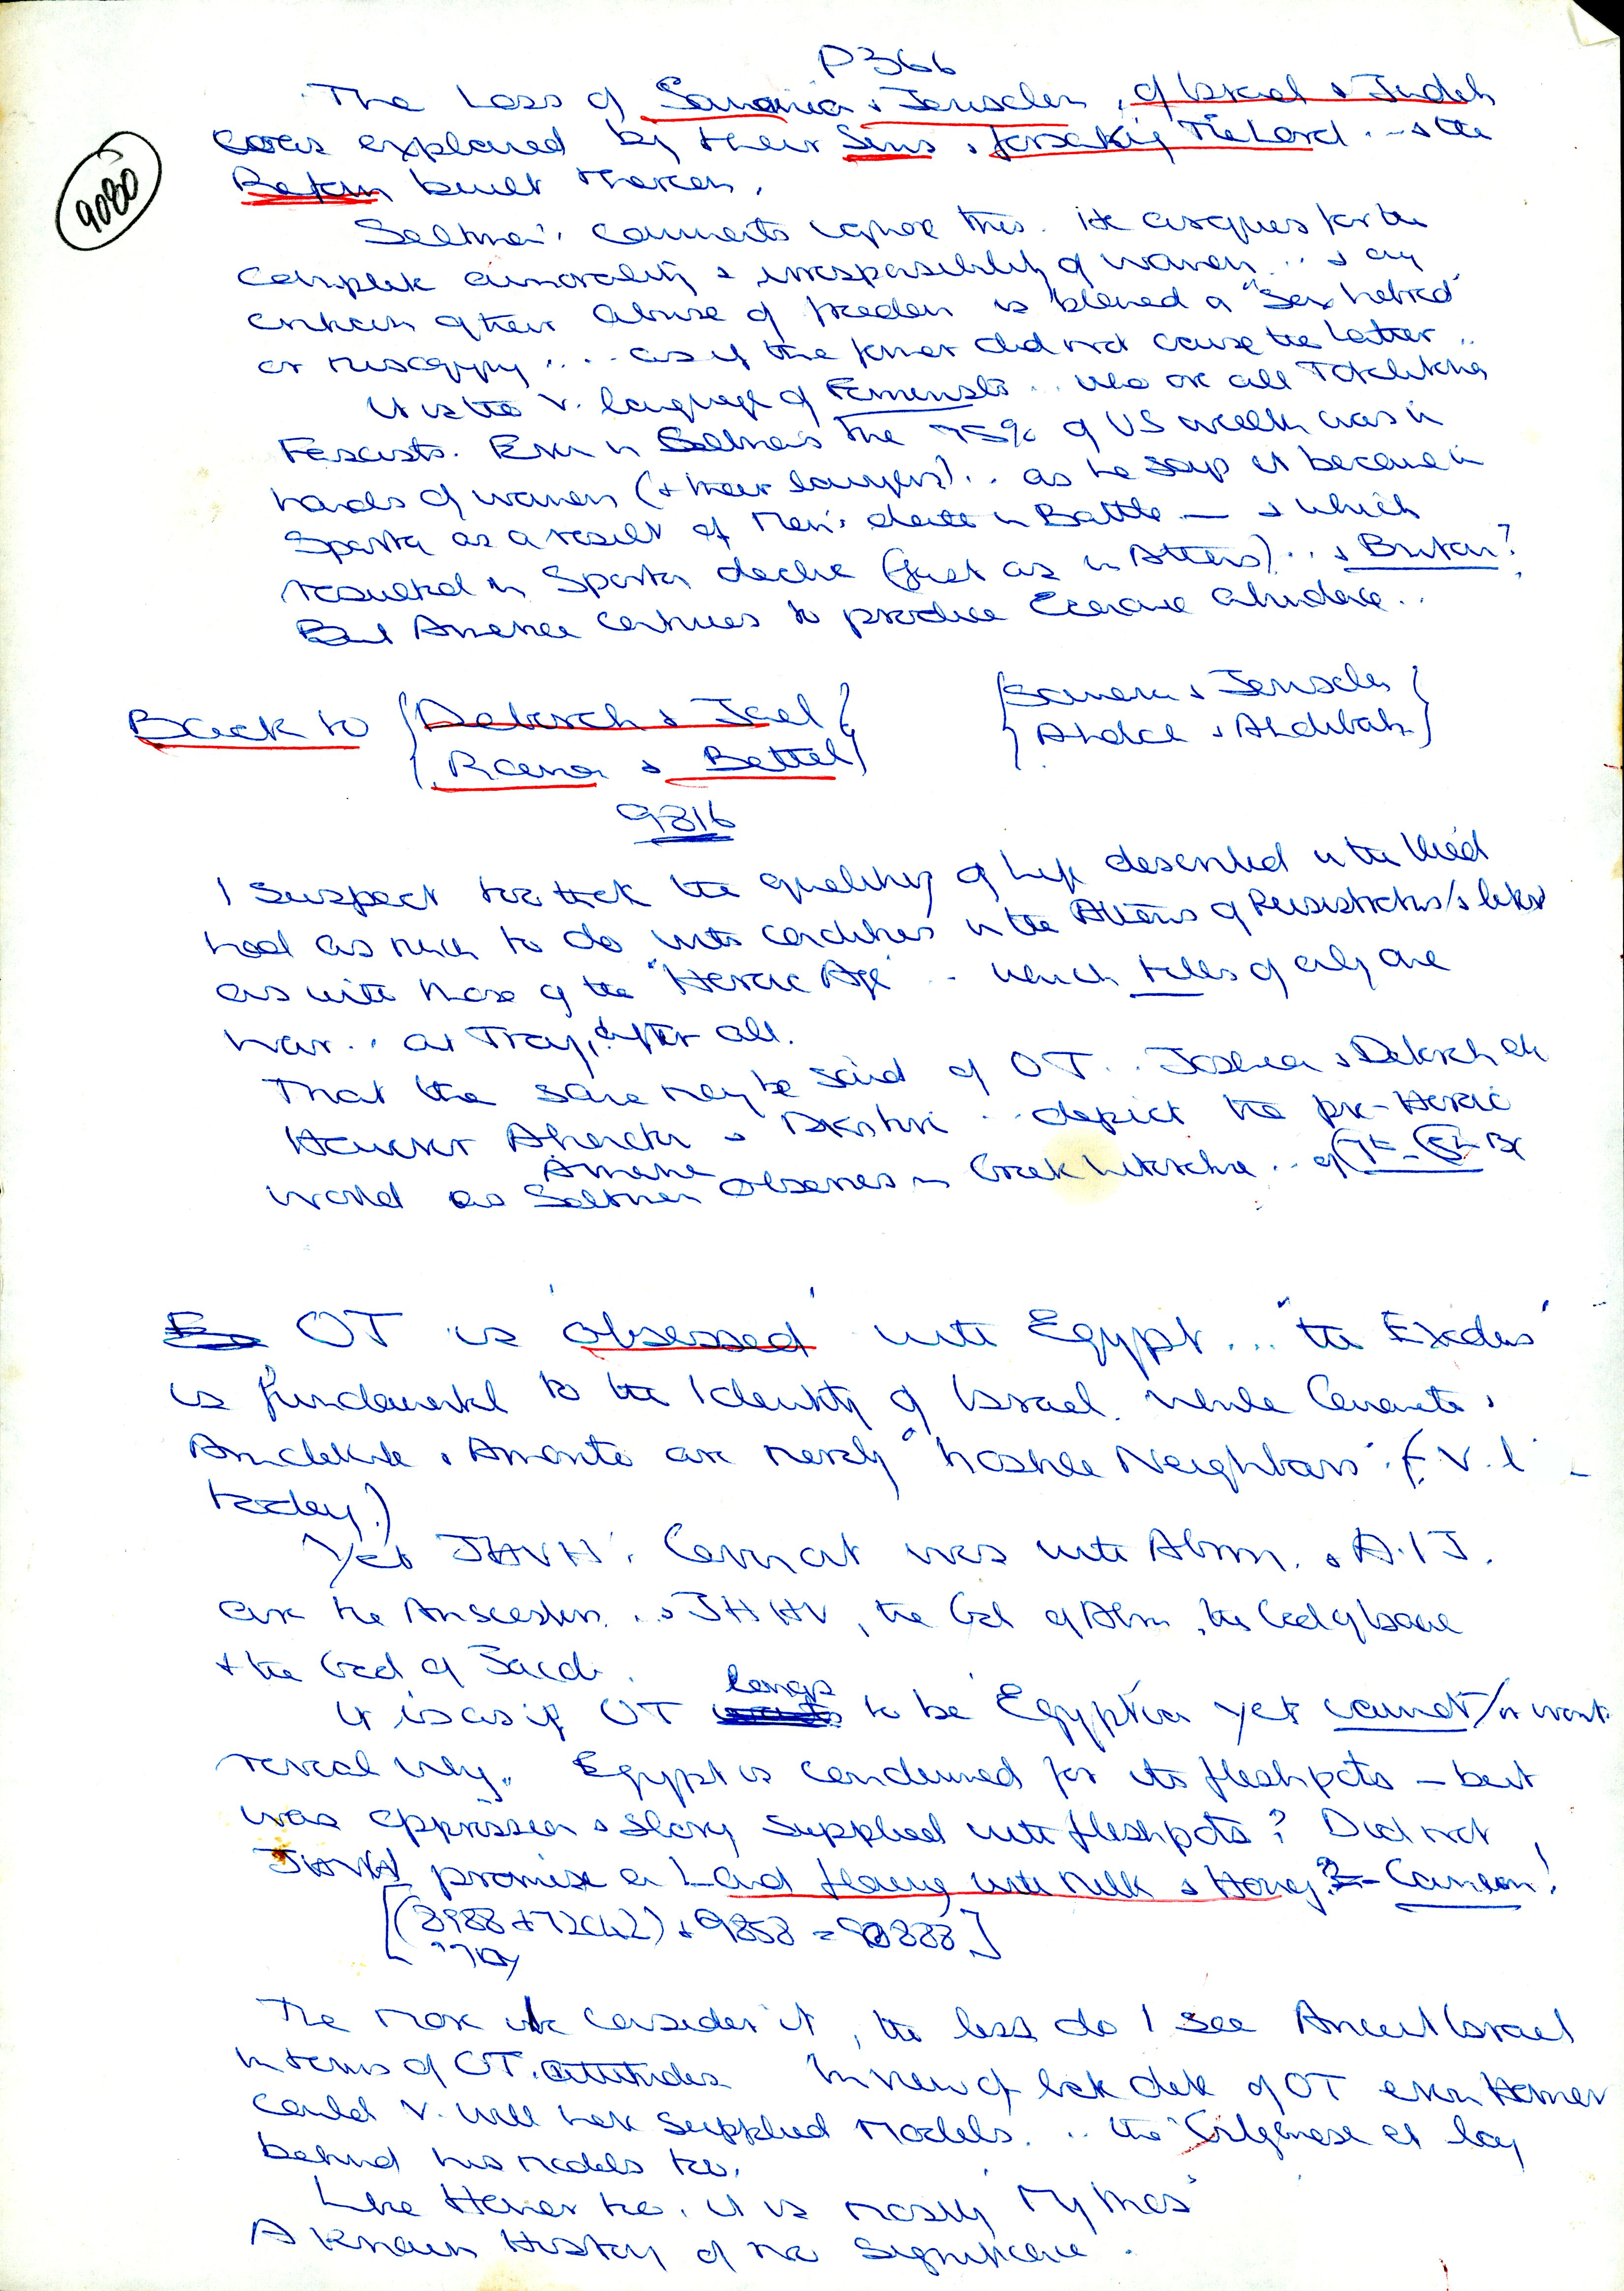 P366
The Loss of Samaria & Jerusalem, of Israel & Judah
was explained by their Sins & forsaking The Lord. & the
built thereon.
9080
Seltman's comments ignore this. He argues for the
complete amorality & irresponsibility of women .. & any
criticism of their abuse of freedom is blamed a "sex hatred"
or misogyny ... as if the former did not cause the latter ..
It is the v. language of Feminists .. who are all
Fascists. Even in Seltman's time 75% of US wealth was in
hands of women (& their lawyers) .. as he says it became in
Sparta as a result of Men's death in Battle — & which
resulted in Sparta decline (just as in Athens) .. & Britain?
But America continues to produce abundance ..
Back to { Deborah & Jael }
{ Roma & Bethel }
{ Samaria & Jerusalem }
{ Aholah & Aholibah }
9816
I suspect too that the quality of Life described in the Iliad
had as much to do with conditions in the Athens of Peisistratus / & later
as with those of the "Heroic Age" .. which tells of only one
war .. at Troy, after all.
That the same may be said of OT .. Joshua & Deborah etc
However depict the pre-Heroic
world as Seltman observes in Greek Literature .. of 7th - 5th BC
OT is 'obsessed' with Egypt ... "the Exodus"
is fundamental to the Identity of Israel. while Canaanite,
Amalekite, Amorite are merly "hostile Neighbours". (v. l.
today.)
Yet JHVH's Covenant was with Abrm. & A.I J.
are the Anscestors .. & JHHV, the God of Abm, the God of Isaac
& the God of Jacob.
It is as if OT longs to be Egyptian yet cannot / or wont
reveal why. Egypt is condemned for its fleshpots — but
was oppression & slavery supplied with fleshpots? Did not
JHVH promise a Land flowing with Milk & Honey? = Canaan!
[(8988 + 72(42) + 9858 = 90888]
The more I consider it, the less do I see Ancient Israel
in terms of OT. attitudes In view of late date of OT even Homer
could v. well have supplied models. .. the Gilgamesh et lay
behind his models too.
Like Homer too, it is mostly 'Mythos'
A known History of no significance.